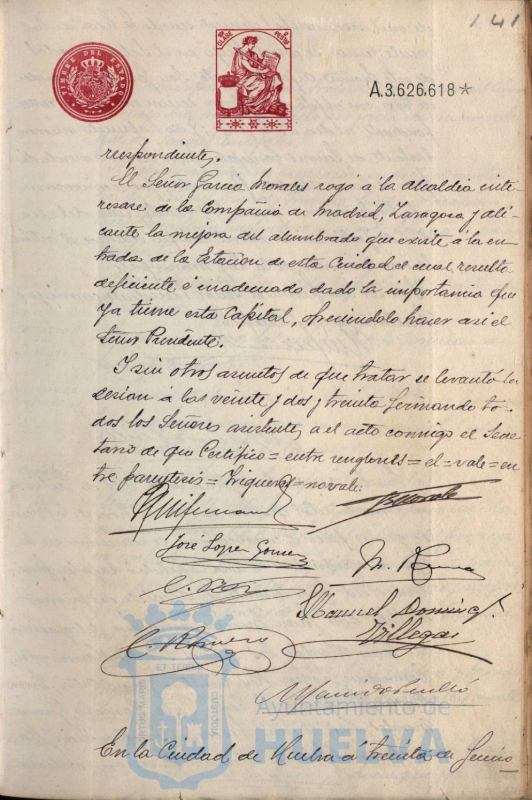 141
TIMBRE DEL ESTADO
CLASE
A.3,626,618*
respondiente.
El Señor Garcia Morales rogó á la Alcaldia inte
resase de la Compañia de Madrid, Zaragoza y Ali
cante la mejora del alumbrado que existe á la en
trada de la Estacion de esta Ciudad el cual resulta
deficiente é inadecuado dado la importancia que
ya tiene esta Capital, ofreciendolo hacer asi el
Señor Presidente.
Y sin otros asuntos de que tratar se levantó la
sesion á las veinte y dos y treinta firmando to-
dos los Señores asistentes al acto conmigo el Secre
tario de que Certifico = entre renglones = el = vale = en
tre parentesis = Triguero = no vale.
José Lopez Gomez
Manuel Doming.
Villegas
C. Romero
Ayuntamiento de
HUELVA
En la Ciudad de Huelva á treinta de Junio